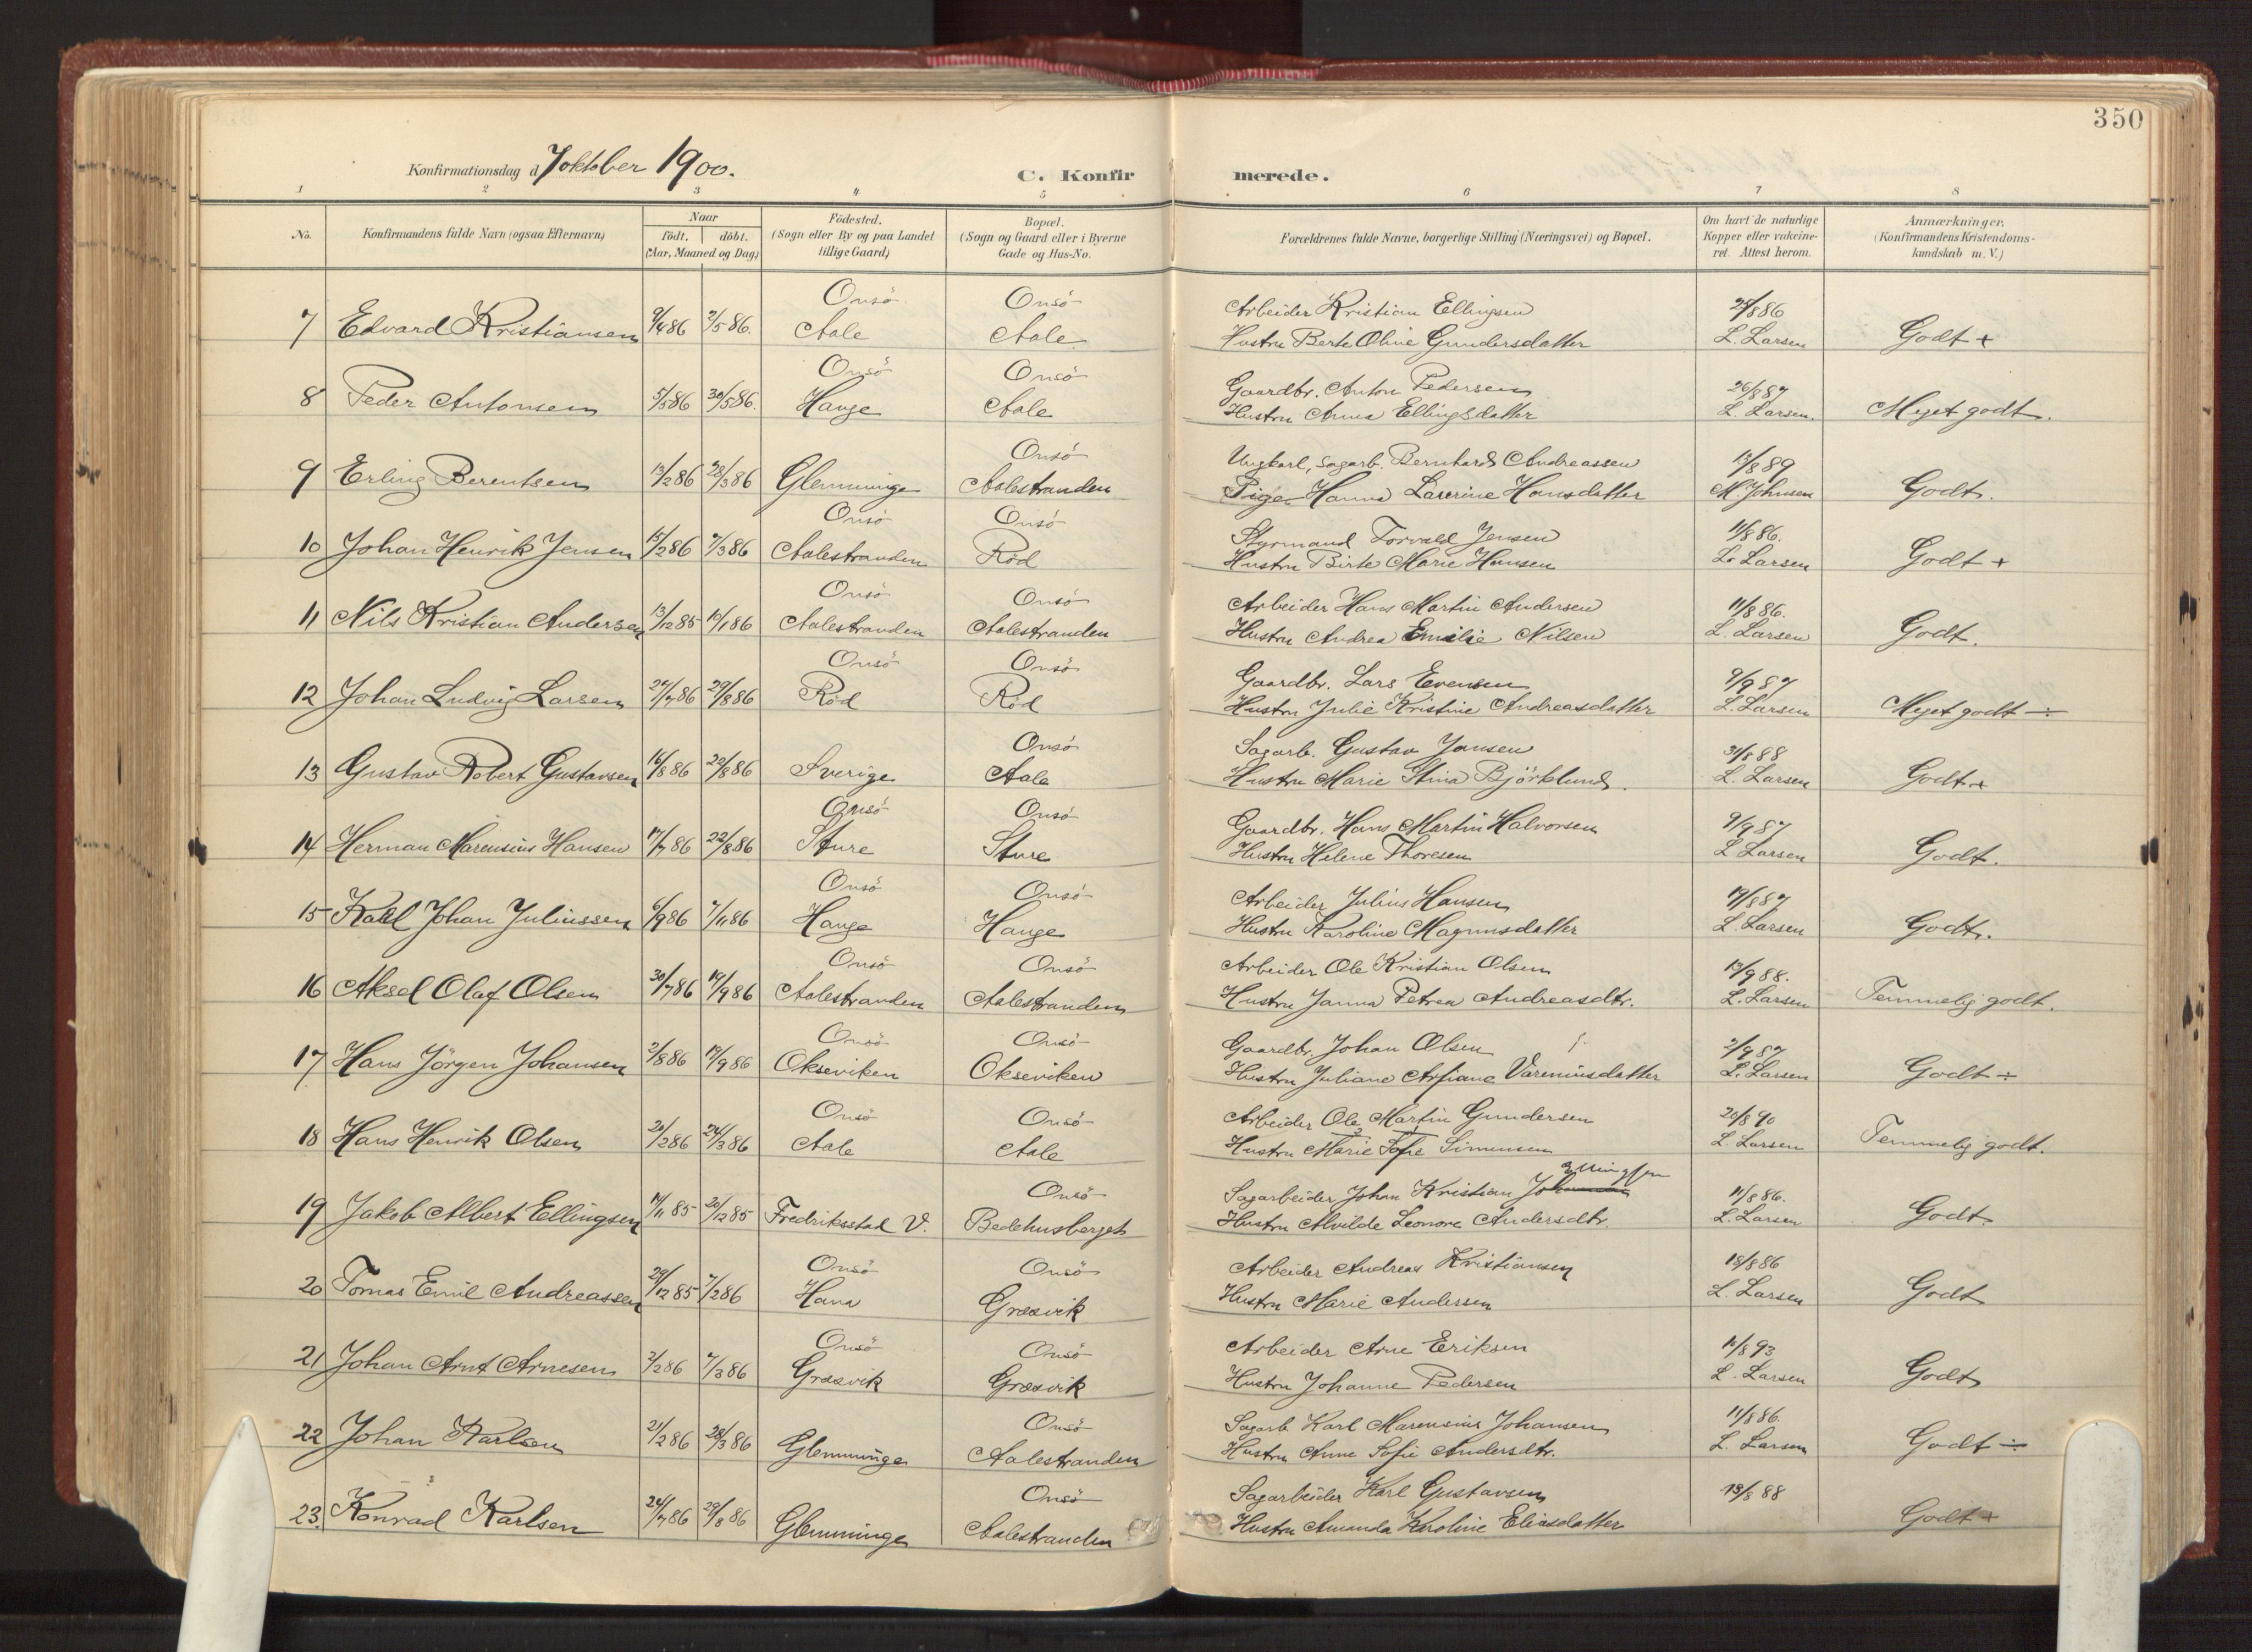 350
Konfirmationsdag d. 7 oktober 1900.
C. Konfirmerede.
1 2 3 4 5 6 7 8
No. Konfirmandens fulde Navn (ogsaa Efternavn) Naar født. døbt. (Aar, Maaned og Dag) Födested. (Sogn eller By og paa Landet tillige Gaard) Bopæl. (Sogn og Gaard eller i Byerne Gade og Hus-No. Forældrenes fulde Navne, borgerlige Stilling (Næringsvei) og Bopæl. Om havt de naturlige Kopper eller vakcineret. Attest herom. Anmærkninger. (Konfirmandens Kristendomskundskab m. V.)
Onsö Onsö Arbeider Kristian Ellingsen 25/8 86
7 Edvard Kristiansen 9/4 86 2/5 86. Aale Aale Hustru Berte Oline Gundersdatter L. Larsen Godt +
Onsö Onsö Gaardbr. Anton Pedersen 26/8 87
8 Peder Antonsen 5/5 86 30/5 86. Hauge Aale Hustru Anna Ellingsdatter L. Larsen. Meget godt.
Onsö Ungkarl, Sagarb. Bernhard Andreassen 13/8 89
9 Erling Berentsen 13/2 86 28/3 86 Glemminge Aalestranden Pige Hanna Laverine Hansdatter M. Johnsen Godt.
Onsö Onsö Styrmand Torvald Jensen 11/8 86.
10 Johan Henrik Jensen 15/2 86 7/3 86 Aalestranden Röd Hustru Birte Marie Hansen L. Larsen Godt +
Onsö Onsö Arbeider Hans Martin Andersen 11/8 86.
11 Nils Kristian Andersen 13/12 85 10/1 86 Aalestranden Aalestranden Hustru Andrea Emilie Nilsen L. Larsen Godt.
Onsö Onsö Gaardbr. Lars Evensen 9/9 87
12 Johan Ludvig Larsen 24/7 86 29/8 86 Röd Röd Hustru Julie Kristine Andreasdatter L. Larsen Meget godt ÷
Onsö Sagarb. Gustav Jansen 31/8 88
13 Gustav Robert Gustavsen 16/8 86 22/8 86 Sverige Aale Hustru Marie Stina Björklund. L. Larsen Godt +
Onsö Onsö Gaardbr. Hans Martin Halvorsen 9/9 87
14 Herman Marensius Hansen 17/7 86 22/8 86 Sture Sture Hustru Helene Thoresen L. Larsen Godt.
Onsö Onsö Arbeider Julius Hansen 19/8 87
15 Karl Johan Juliussen 6/9 86 7/11 86 Hauge Hauge Hustru Karoline Magnusdatter L. Larsen Godt.
Onsö Onsö Arbeider Ole Kristian Olsen 13/9 88.
16 Aksel Olaf Olsen 30/7 86 19/9 86 Aalestranden Aalestranden Hustru Janna Petrea Andreasdtr. L. Larsen Temmelig godt.
Onsö Onsö Gaardbr. Johan Olsen 2/9 87
17 Hans Jörgen Johansen 2/8 86 19/9 86 Okseviken Okseviken Hustru Juliane Vareniusdatter L. Larsen Godt ÷
Onsö Onsö Arbeider Ole Martin Gundersen 20/8 90
18 Hans Henrik Olsen 20/2 86 24/3 86 Aale Aale Hustru Marie Sofie Simensen L. Larsen Temmelig godt.
Ellingsen
Onsö Sagarbeider Johan Kristian Johansen 11/8 86.
19 Jakob Albert Ellingsen 14/11 85 20/12 85 Fredriksstad V. Bedehusberget Hustru Alvilde Leonore Andersdtr. L. Larsen Godt.
Onsö Onsö Arbeider Andreas Kristiansen 18/8 86
20 Tomas Emil Andreassen 29/12 85 7/2 86 Hana Græsvik Hustru Marie Andersen L. Larsen Godt
Onsö Onsö Arbeider Arne Eriksen 11/8 93
21 Johan Arnt Arnesen 2/2 86 7/3 86 Græsvik Græsvik Hustru Johanne Pedersen L. Larsen Godt
Onsö Sagarb. Karl Marensius Johansen 11/8 86.
22 Johan Karlsen 21/2 86 28/3 86 Glemminge Aalestranden Hustru Anne Sofie Andersdtr. L. Larsen Godt ÷
Onsö Sagarbeider Karl Gustavsen 13/8 88
23. Konrad Karlsen 24/7 86 29/8 86 Glemminge Aalestranden Hustru Amanda Karoline Eliasdatter Godt +